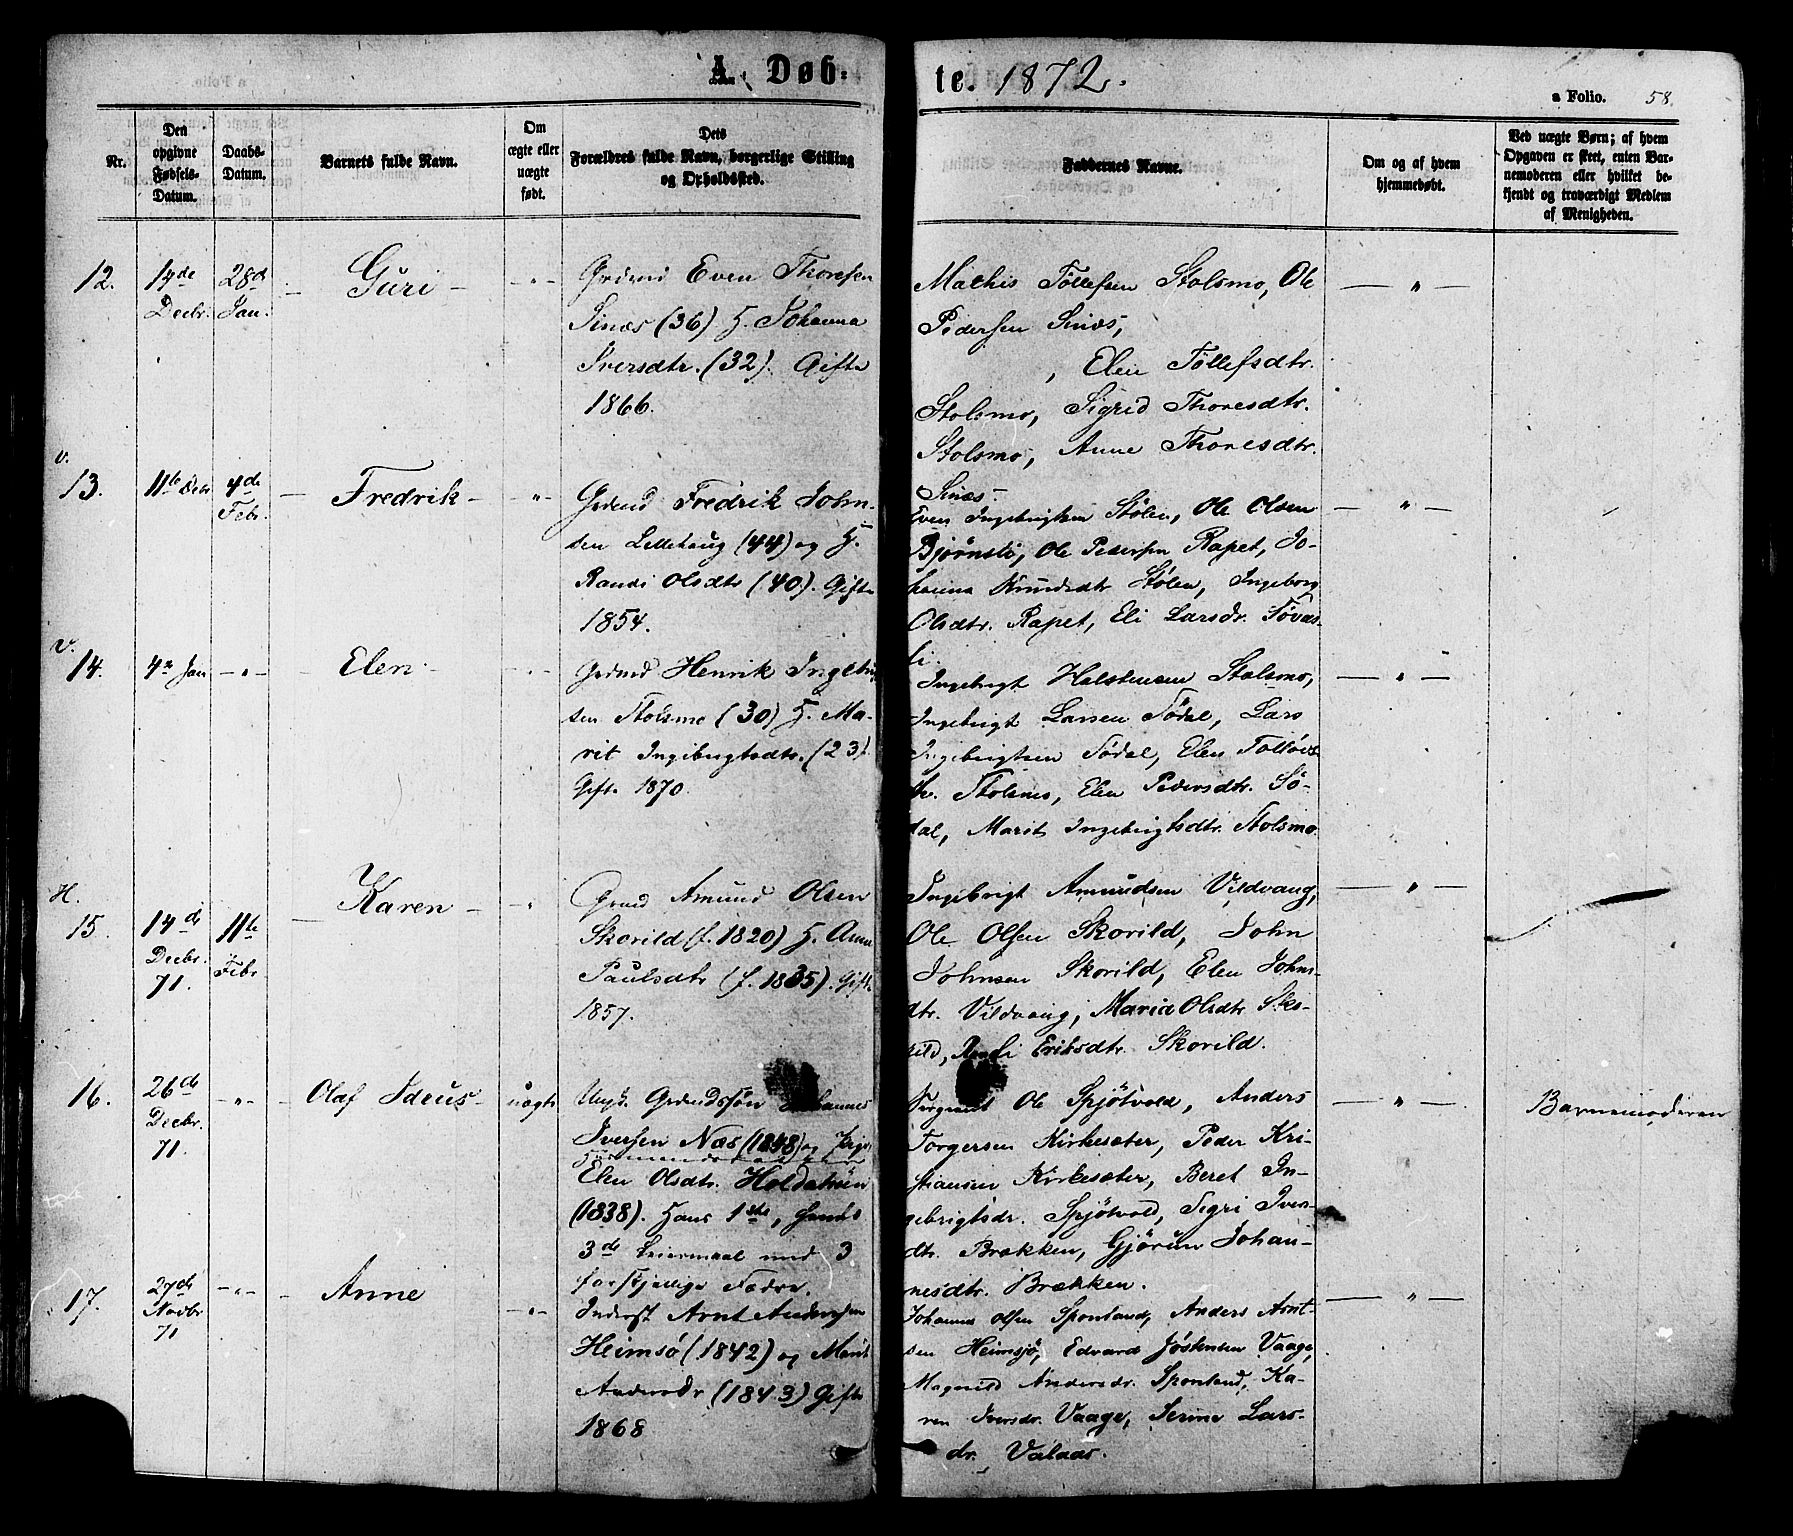 A. Døb-
te. 1872.
a Folio. 58.
Nr.
Den opgivne Fødsels-Datum.
Daabs-Datum.
Barnets fulde Navn.
Om ægte eller uægte født.
Dets Forældres fulde Navn, borgerlige Stilling og Opholdssted.
Faddernes Navne.
Om og af hvem hjemmedøbt.
Ved uægte Børn; af hvem Opgaven er skeet, enten Barnemoderen eller hvilket bekjendt og troværdigt Medlem af Menigheden.
12. 19de Decbr. 28de Jan. Guri
Even Thoresen
Sinæs (36) H. Johanna
Iversdtr. (32). Gifte
1866.
Mathis Tøllefsen Stolsmo, Ole
Pedersen Sinæs,
, Elen Tøllefsdtr.
Stolsmo, Sigrid Thoresdtr.
Stolsmo, Anne Thoresdtr.
Sinæs.
v.
13. 11te Debr 4de Febr. Fredrik
Grdmd Fredrik John-
sen Lillehaug (44) og H.
Randi Olsdtr (40). Gifte
1854.
Even Ingebrigtsen Stølen, Ole Olsen
Bjørnslø, Ole Pedersen Rapet, Jo-
hanna Knudsdtr Stølen, Ingeborg
Olsdtr. Rapet, Eli Larsdr. Søvas-
li.
v.
14. 4de Jan - " - Elen
Grdmd Henrik Ingebri
sen Stolsmo (30) H. Ma-
rit Ingibrigtsdtr. (23)
Gifte 1870.
Ingebrigt Halstensen Stolsmo,
Ingebrigt Larsen Sødal, Lars
Ingebrigtsen Sødal, Elen Tølløvs
dtr. Stolsmo, Elen Pedersdtr. Sø-
dal, Marit Ingebrigtsdtr. Stolsmo.
H.
15. 14de Decbr. 71. 11te Febr Karen
Grmd Amund Olsen
Skorild (f. 1820) H. Anne
Paulsdtr (f. 1835). Gift
1857.
Ingebrigt Amundsen Vildvang,
Ole Olsen Skorild, John
Johnsen Skorild, Elen Johns-
dtr. Vildvang, Maria Olsdtr. Sko-
rild, Eriksdtr. Skorild.
16. 26de Decbr. 71. - " - Olaf Ideus uægte
Ungk. Grdmdssøn Johannes
Iversen Næs (1848) og Pige
Elen Olsdtr. Holdahsen
(1838). Hans 1ste, hendes
3de Leiermaal med 3
forskjellige Fædre.
Sergeant Ole Spjøtvold, Anders
Torgersen Kirkesæter, Peder Kri-
stiansen Kirkesæter, Beret In-
gebrigtsdr. Spjøtvold, Sigri Ivers-
dtr. Brækken, Gjørun Johan-
nesdtr. Brækken.
Barnemoderen
17. 27de Novbr 71 - " - Anne
Inderst Arnt Andersen
Heimsjø (1842) og Marit
Andersdr (1843) Gifte
1868
Johannes Olsen Sponland, Anders Arnt-
sen Heimsjø, Edvard Jøstensen Vaage,
Magnild Andersdr. Sponland, Ka-
ren Iversdr. Vaage, Serine Lars-
dr. Valaas.